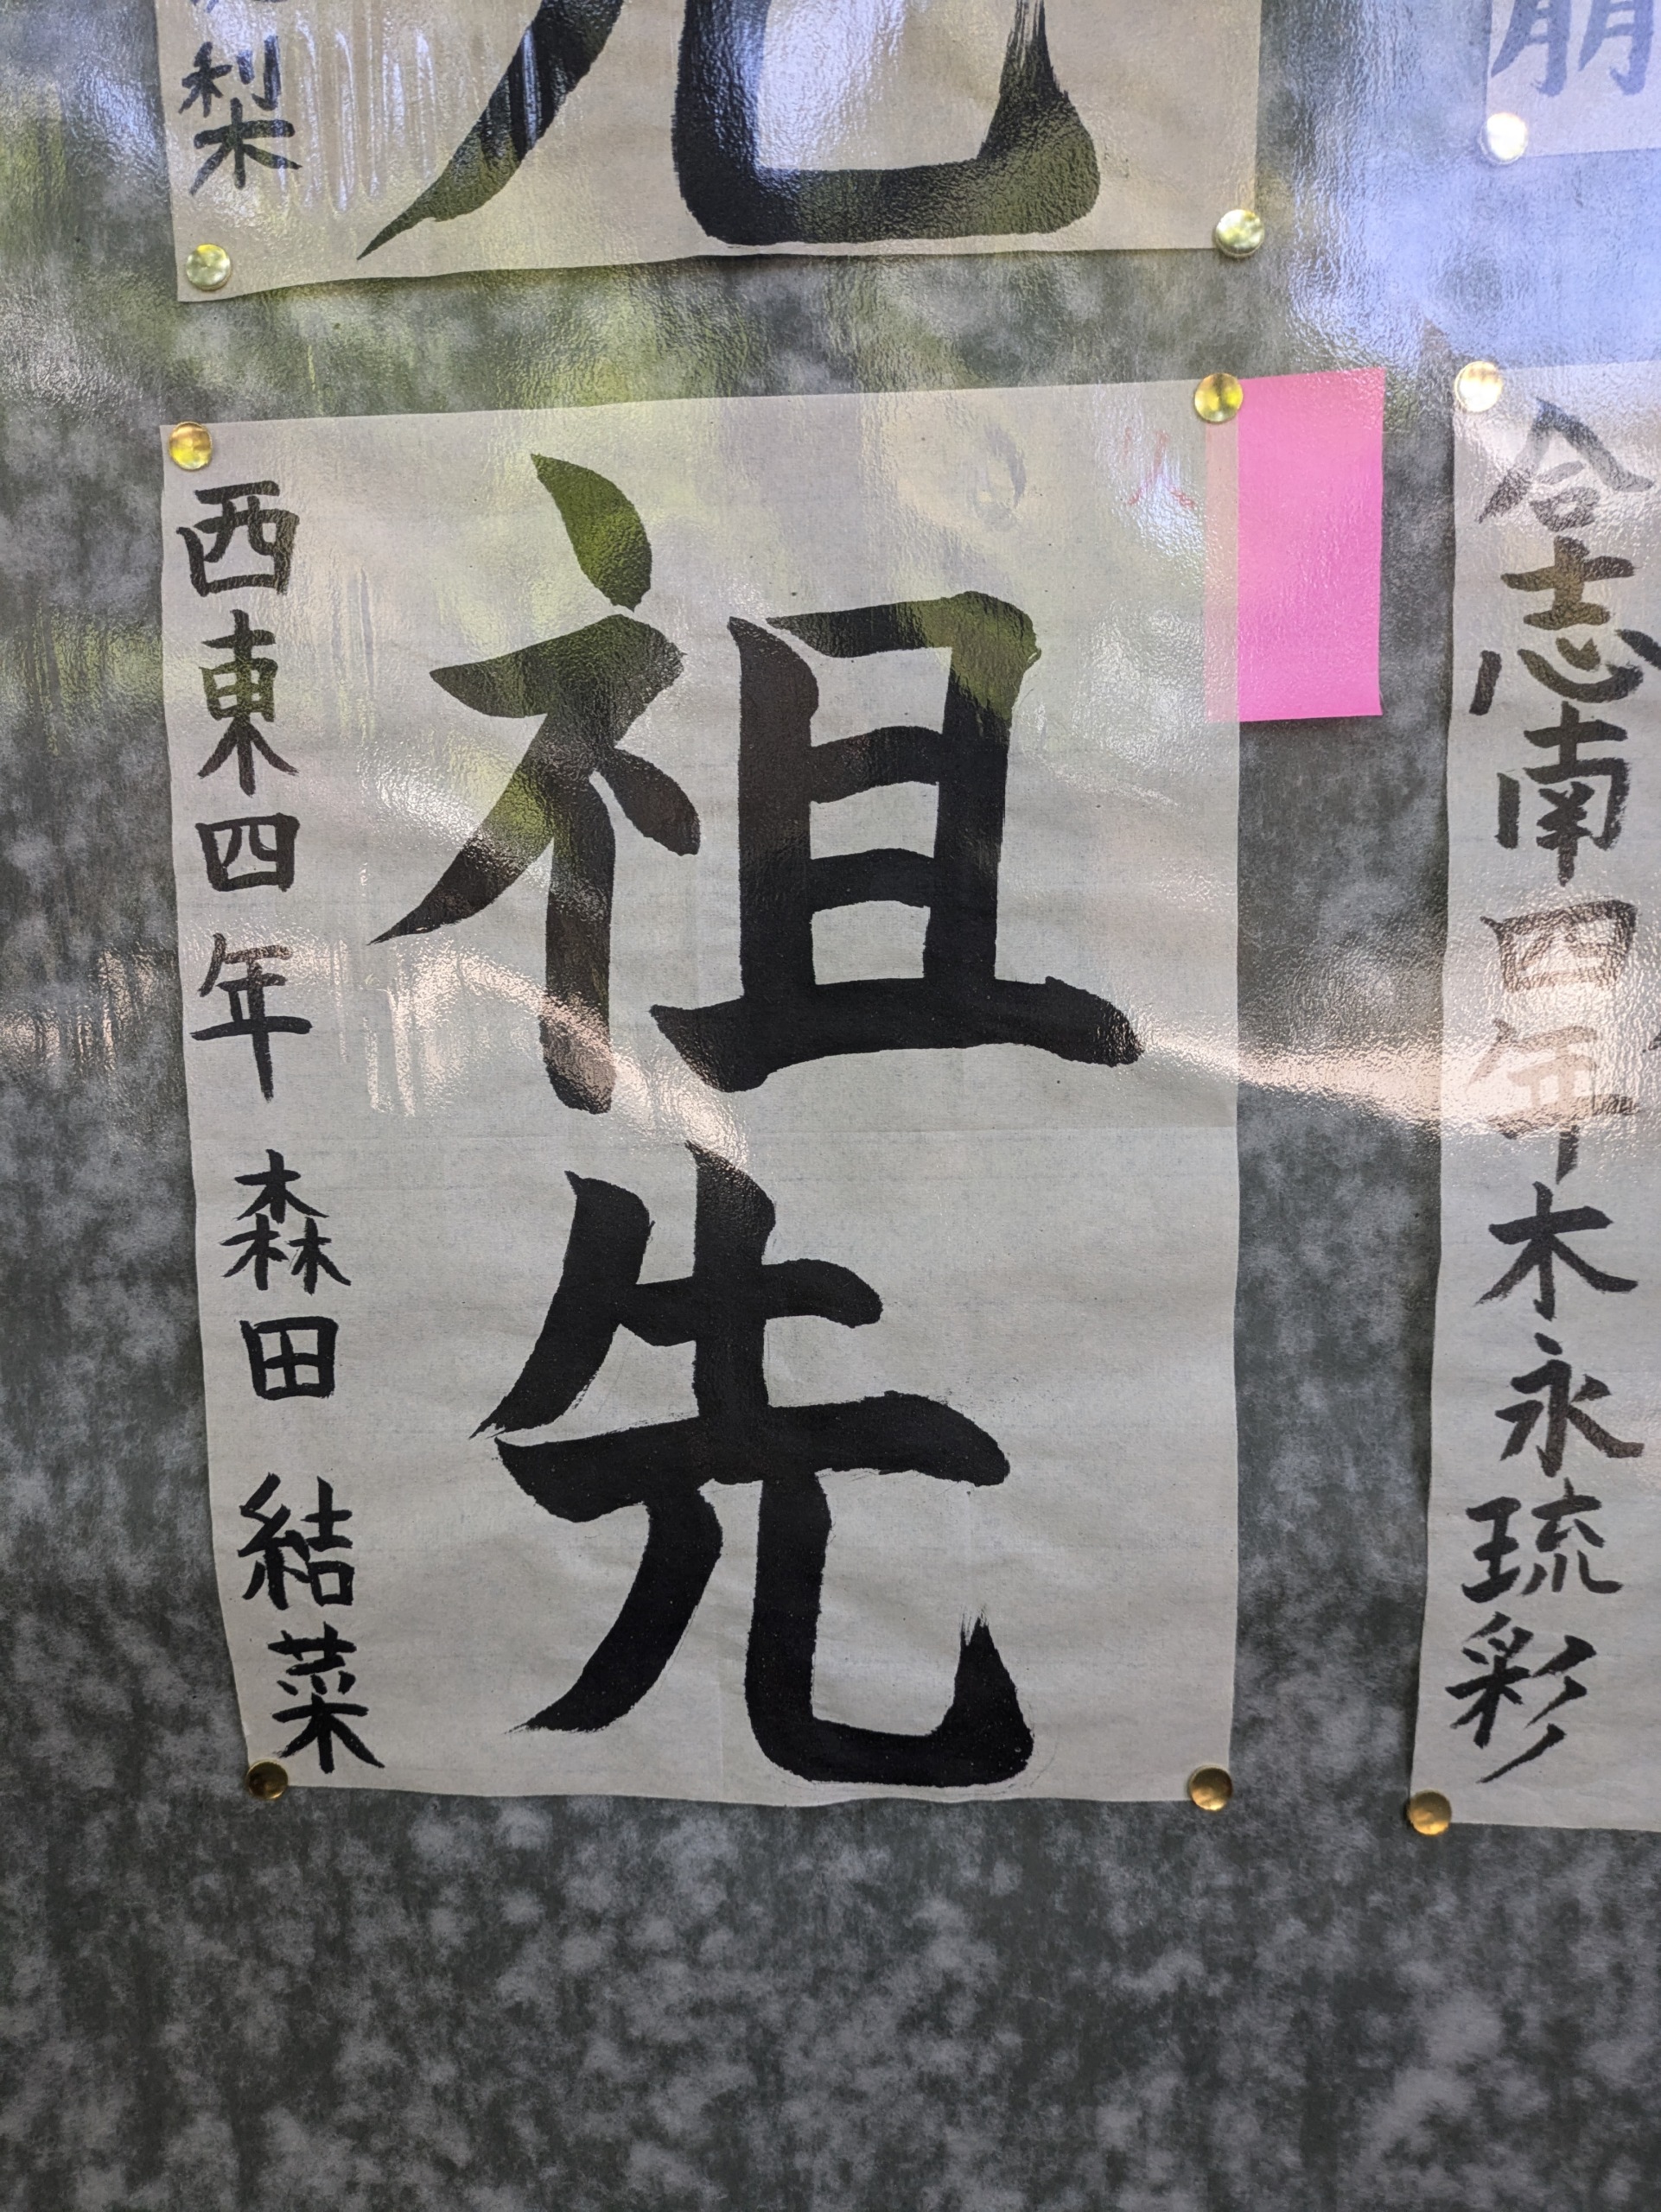 梨
祖先
西東四年 森田 結菜
合志南四年 木永琉彩